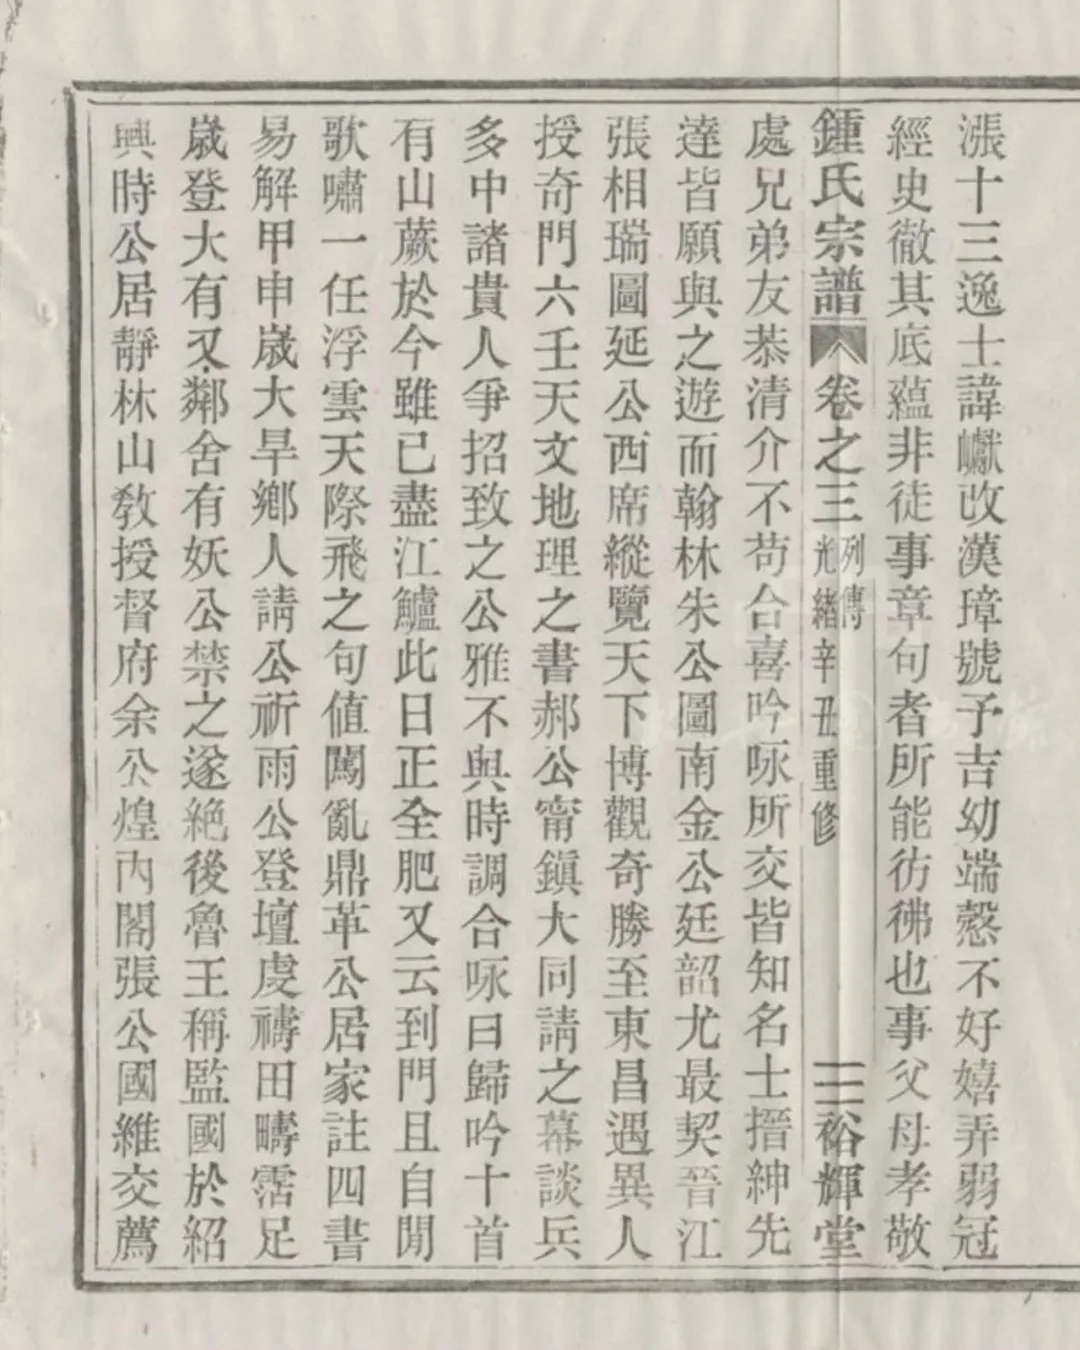 漲十三逸士諱巘改漢璋號予吉幼端愨不好嬉弄弱冠
經史徹其底蘊非徒事章句者所能彷彿也事父母孝敬
鍾氏宗譜 卷之三 列傳 光緒辛丑重修 三 裕輝堂
處兄弟友恭清介不苟合喜吟咏所交皆知名士搢紳先
達皆願與之遊而翰林朱公圖南金公廷韶尤最契晉江
張相瑞圖延公西席縱覽天下博觀奇勝至東昌遇異人
授奇門六壬天文地理之書郝公甯鎮大同請之幕談兵
多中諸貴人爭招致之公雅不與時調合咏曰歸吟十首
有山蕨於今雖已盡江鱸此日正全肥又云到門且自閒
歌嘯一任浮雲天際飛之句值闖亂鼎革公居家註四書
易解甲申歲大旱鄉人請公祈雨公登壇虔禱田疇霑足
歲登大有又鄰舍有妖公禁之遂絕後魯王稱監國於紹
興時公居靜林山敎授督府余公煌內閣張公國維交薦